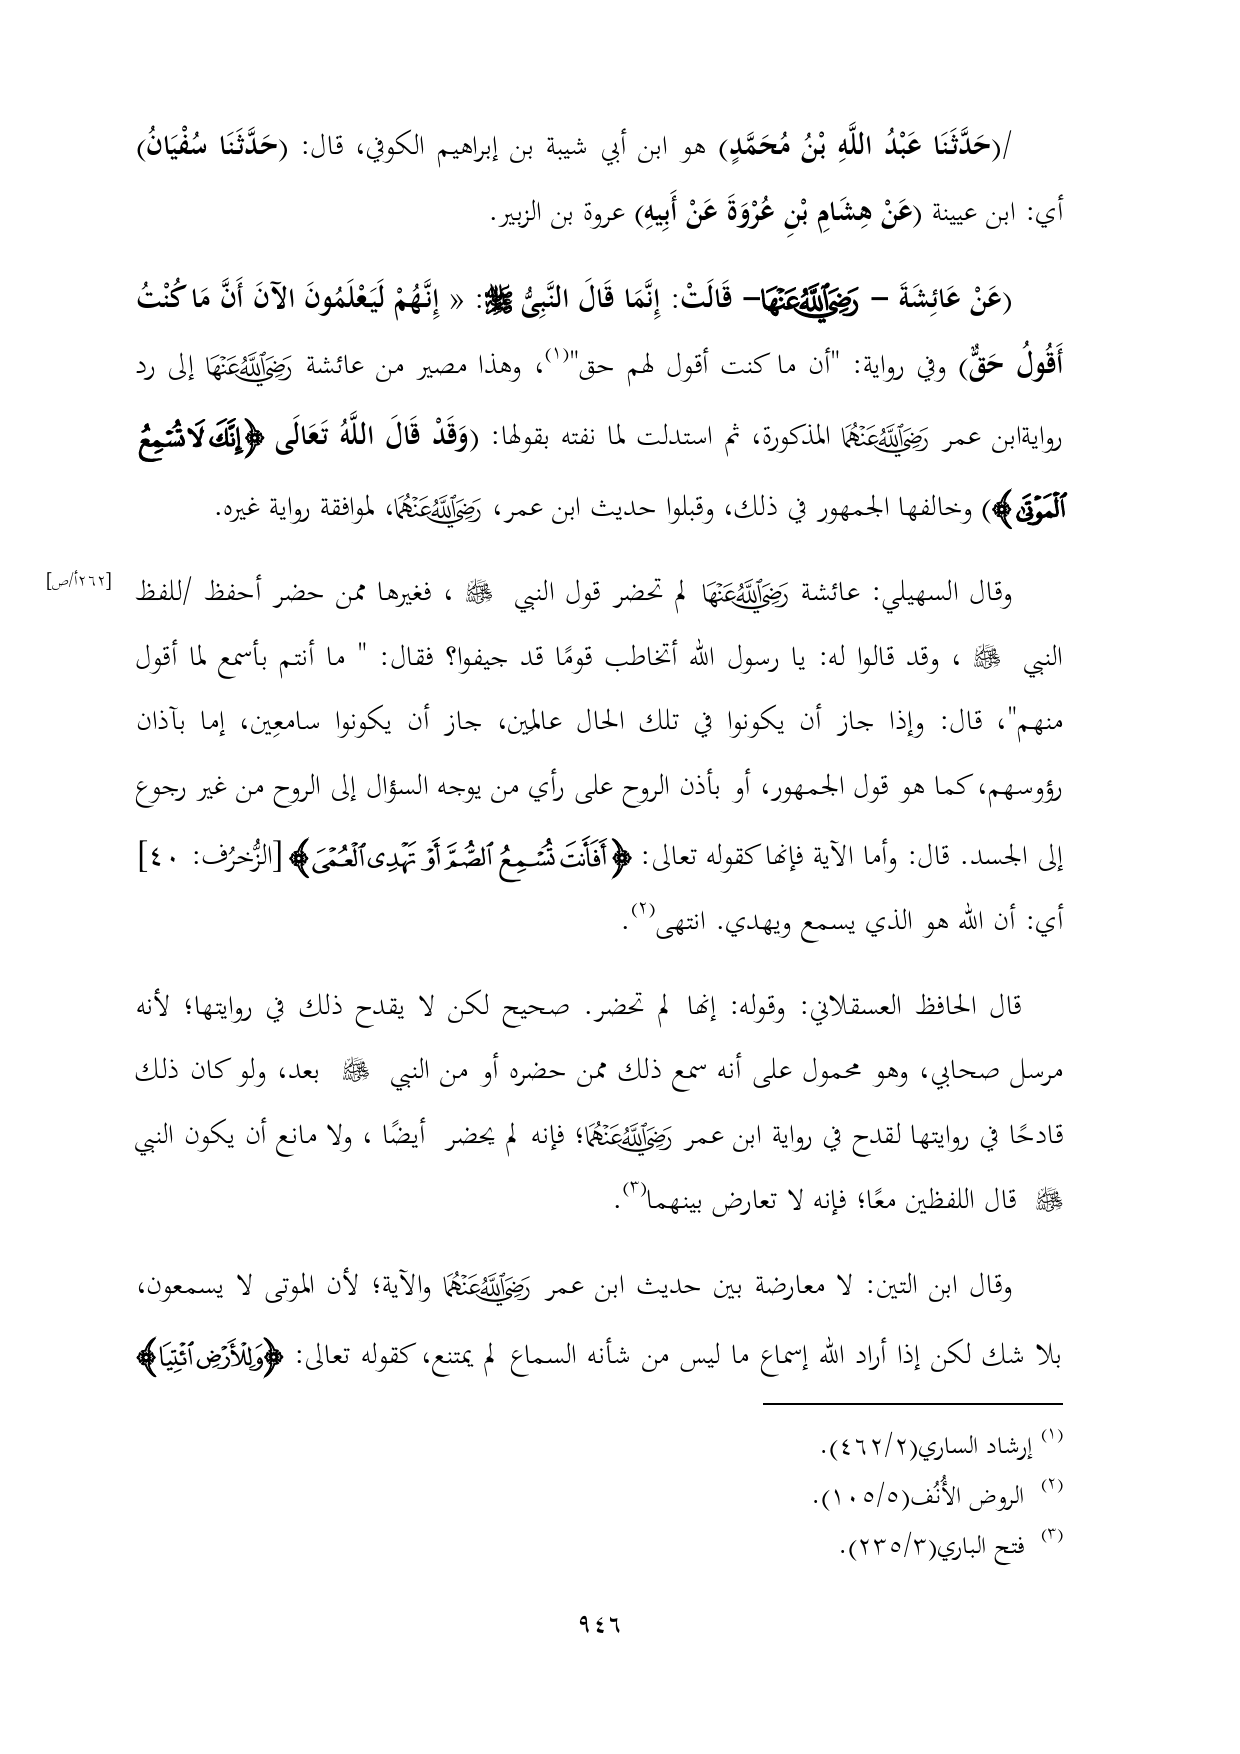 /(حَدَّثَنَا عَبْدُ اللَّهِ بْنُ مُحَمَّدٍ) هو ابن أبي شيبة بن إبراهيم الكوفي، قال: (حَدَّثَنَا سُفْيَانُ)
أي: ابن عيينة (عَنْ هِشَامِ بْنِ عُرْوَةَ عَنْ أَبِيهِ) عروة بن الزبير.
(عَنْ عَائِشَةَ – رَضِيَ اللَّهُ عَنْهَا– قَالَتْ: إِنَّمَا قَالَ النَّبِيُّ ﷺ: « إِنَّهُمْ لَيَعْلَمُونَ الآنَ أَنَّ مَا كُنْتُ
أَقُولُ حَقٌّ) وفي رواية: "أن ما كنت أقول لهم حق"(١)، وهذا مصير من عائشة رَضِيَ اللَّهُ عَنْهَا إلى رد
روايةابن عمر رَضِيَ اللَّهُ عَنْهُمَا المذكورة، ثم استدلت لما نفته بقولها: (وَقَدْ قَالَ اللَّهُ تَعَالَى ﴿إِنَّكَ لَا تُسْمِعُ
ٱلْمَوْتَىٰ﴾) وخالفها الجمهور في ذلك، وقبلوا حديث ابن عمر، رَضِيَ اللَّهُ عَنْهُمَا، لموافقة رواية غيره.
وقال السهيلي: عائشة رَضِيَ اللَّهُ عَنْهَا لم تحضر قول النبي ﷺ ، فغيرها ممن حضر أحفظ /للفظ
[٢٦٢أ/ص]
النبي ﷺ ، وقد قالوا له: يا رسول الله أتخاطب قومًا قد جيفوا؟ فقال: " ما أنتم بأسمع لما أقول
منهم"، قال: وإذا جاز أن يكونوا في تلك الحال عالمِين، جاز أن يكونوا سامعِين، إما بآذان
رؤوسهم، كما هو قول الجمهور، أو بأذن الروح على رأي من يوجه السؤال إلى الروح من غير رجوع
إلى الجسد. قال: وأما الآية فإنها كقوله تعالى: ﴿أَفَأَنتَ تُسْمِعُ ٱلصُّمَّ أَوْ تَهْدِى ٱلْعُمْىَ﴾ [الزُّخرُف: ٤٠]
أي: أن الله هو الذي يسمع ويهدي. انتهى(٢).
قال الحافظ العسقلاني: وقوله: إنها لم تحضر. صحيح لكن لا يقدح ذلك في روايتها؛ لأنه
مرسل صحابي، وهو محمول على أنه سمع ذلك ممن حضره أو من النبي ﷺ بعد، ولو كان ذلك
قادحًا في روايتها لقدح في رواية ابن عمر رَضِيَ اللَّهُ عَنْهُمَا؛ فإنه لم يحضر أيضًا ، ولا مانع أن يكون النبي
ﷺ قال اللفظين معًا؛ فإنه لا تعارض بينهما(٣).
وقال ابن التين: لا معارضة بين حديث ابن عمر رَضِيَ اللَّهُ عَنْهُمَا والآية؛ لأن الموتى لا يسمعون،
بلا شك لكن إذا أراد الله إسماع ما ليس من شأنه السماع لم يمتنع، كقوله تعالى: ﴿وَلِلْأَرْضِ ٱئْتِيَا﴾
(١) إرشاد الساري(٤٦٢/٢).
(٢) الروض الأُنُف(١٠٥/٥).
(٣) فتح الباري(٢٣٥/٣).
٩٤٦